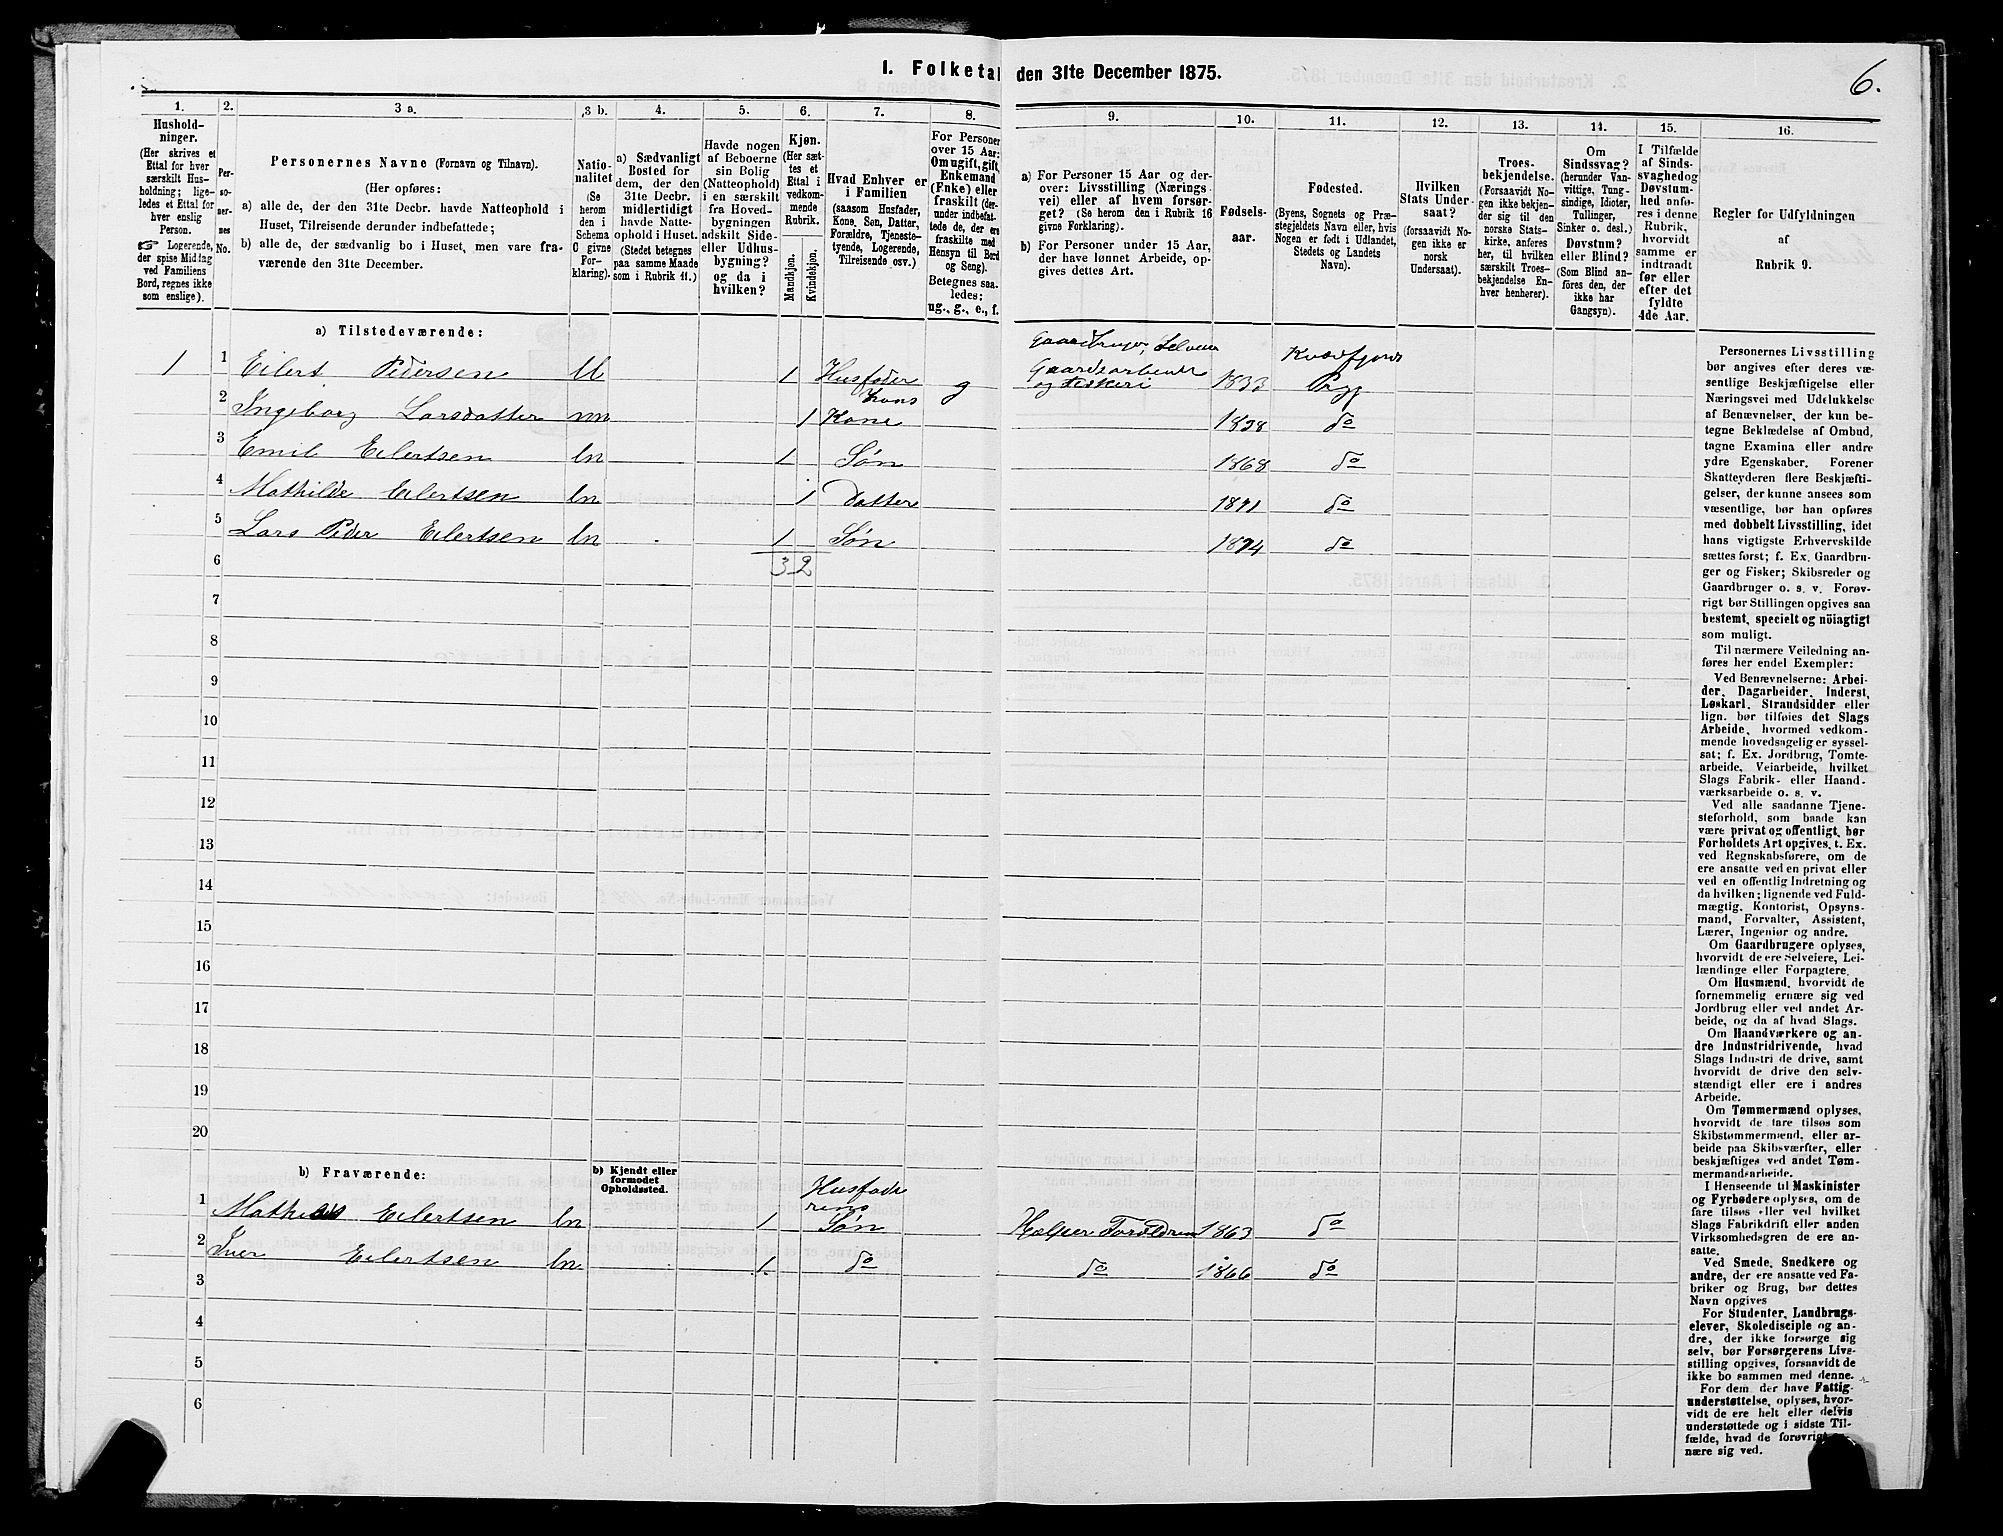 I. Folketal den 31te December 1875.
6.
1. 2. 3 a. 3 b. 4. 5. 6. 7. 8. 9. 10. 11. 12. 13. 14. 15. 16.
Hushold-
ninger.
(Her skrives et
Ettal for hver
særskilt Hus-
holdning; lige-
ledes et Ettal for
hver enslig
Person.
☞ Logerende,
der spise Middag
ved Familiens
Bord, regnes ikke
som enslige).
Per-
so-
ner-
nes
No.
Personernes Navne (Fornavn og Tilnavn).
(Her opføres:
a) alle de, der den 31te Decbr. havde Natteophold i
Huset, Tilreisende derunder indbefattede;
b) alle de, der sædvanlig bo i Huset, men vare fra-
værende den 31te December.
Natio-
nalitet
(Se
herom
den i
Schema
C givne
For-
klaring).
a) Sædvanligt
Bosted for
dem, der den
31te Decbr.
midlertidigt
havde Natte-
ophold i Huset.
(Stedet betegnes
paa samme Maade
som i Rubrik 11.)
Havde nogen
af Beboerne
sin Bolig
(Natteophold)
i en særskilt
fra Hoved-
bygningen
adskilt Side-
eller Udhus-
bygning?
og da i
hvilken?
Kjøn.
(Her sæt-
tes et
Ettal i
vedkom-
mende
Rubrik.
Mandkjøn.
Kvindekjøn.
Hvad Enhver er
i Familien
(saasom Husfader,
Kone, Søn, Datter,
Forældre, Tjeneste-
tyende, Logerende,
Tilreisende osv.)
For Personer
over 15 Aar:
Om ugift, gift,
Enkemand
(Enke) eller
fraskilt (der-
under indbefat-
tede de, der ere
fraskilte med
Hensyn til Bord
og Seng).
Betegnes saa-
ledes:
ug., g., e., f.
a) For Personer 15 Aar og der-
over: Livsstilling (Nærings-
vei) eller af hvem forsør-
get? (Se herom den i Rubrik 16
givne Forklaring).
b) For Personer under 15 Aar,
der have lønnet Arbeide, op-
gives dettes Art.
Fødsels-
aar.
Fødested.
(Byens, Sognets og Præ-
stegjeldets Navn eller, hvis
Nogen er født i Udlandet,
Stedets og Landets
Navn).
Hvilken
Stats Under-
saat?
(forsaavidt No-
gen ikke er
norsk
Undersaat).
Troes-
bekjendelse.
(Forsaavidt No-
gen ikke bekjen-
der sig til den
norske Stats-
kirke, anføres
her, til hvilken
særskilt Troes-
bekjendelse En-
hver henhører).
Om
Sindssvag?
(herunder Van-
vittige, Tung-
sindige, Idioter,
Tullinger,
Sinker o. desl.)
Døvstum?
eller Blind?
(Som Blind an-
føres den, der
ikke har
Gangsyn).
I Tilfælde
af Sinds-
svaghed og
Døvstum-
hed anfø-
res i denne
Rubrik,
hvorvidt
samme er
indtraadt
før eller
efter det
fyldte
4de Aar.
Regler for Udfyldningen
af
Rubrik 9.
a) Tilstedeværende:
Gaardbruger, Selveier Kvædfjord
1 1 Eilert Pedersen 1 Husfader g Gaardsarbeide og Fiskeri 1833 Prgj
hans
2 Ingeborg Larsdatter nn 1 Kone 1838 do
3 Emil Eilertsen ln 1 Søn 1868 do
4 Mathilde Eilertsen ln 1 Datter 1871 do
5 Lars Peder Eilertsen ln 1 Søn 1874 do
6 3 2
7
8
9
10
11
12
13
14
15
16
17
18
19
20
b) Fraværende:
b) Kjendt eller
formodet
Opholdssted.
Husfade
rens
1 Eilertsen ln 1 Søn Hælper Forældrene 1863 do
2 Iver Eilertsen ln 1 do do 1866 do
3
4
5
6
Personernes Livsstilling
bør angives efter deres væ-
sentlige Beskjæftigelse eller
Næringsvei med Udelukkelse
af Benævnelser, der kun be-
tegne Beklædelse af Ombud,
tagne Examina eller andre
ydre Egenskaber. Forener
Skatteyderen flere Beskjæfti-
gelser, der kunne ansees som
væsentlige, bør han opføres
med dobbelt Livsstilling, idet
hans vigtigste Erhvervskilde
sættes først; f. Ex. Gaardbru-
ger og Fisker; Skibsreder og
Gaardbruger o. s. v. Forøv-
rigt bør Stillingen opgives saa
bestemt, specielt og nöiagtigt
som muligt.
Til nærmere Veiledning an-
føres her endel Exempler:
Ved Benævnelserne: Arbei-
der, Dagarbeider, Inderst,
Løskarl, Strandsidder eller
lign. bør tilføies det Slags
Arbeide, hvormed vedkom-
mende hovedsagelig er syssel-
sat; f. Ex. Jordbrug, Tomte-
arbeide, Veiarbeide, hvilket
Slags Fabrik- eller Haand-
værksarbeide o. s. v.
Ved alle saadanne Tjene-
steforhold, som baade kan
være privat og offentligt, bør
Forholdets Art opgives, f. Ex.
ved Regnskabsførere, om de
ere ansatte ved en privat eller
ved en offentlig Indretning og
da hvilken; lignende ved Fuld-
mægtig, Kontorist, Opsyns-
mand, Forvalter, Assistent,
Lærer, Ingeniør og andre.
Om Gaardbrugere oplyses,
hvorvidt de ere Selveiere, Lei-
lændinge eller Forpagtere.
Om Husmænd, hvorvidt de
fornemmelig ernære sig ved
Jordbrug eller ved andet Ar-
beide, og da af hvad Slags.
Om Haandværkere og an-
dre Industridrivende, hvad
Slags Industri de drive, samt
hvorvidt de drive den selv-
stændigt eller ere i andres
Arbeide.
Om Tømmermænd oplyses,
hvorvidt de fare tilsøs som
Skibstømmermænd, eller ar-
beide paa Skibsværfter, eller
beskjæftiges ved andet Tøm-
mermandarbeide.
I Henseende til Maskinister
og Fyrbødere oplyses, om de
fare tilsøs eller ved hvilket
Slags Fabrikdrift eller anden
Virksomhedsgren de ere an-
satte.
Ved Smede, Snedkere og
andre, der ere ansatte ved Fa-
briker og Brug, bør dettes
Navn opgives
For Studenter, Landbrugs-
elever, Skoledisciple og an-
dre, der ikke forsørge sig
selv, bør Forsørgerens Livs-
stilling opgives, forsaavidt de
ikke bo sammen med denne.
For dem, der have Fattig-
understøttelse, oplyses, hvor-
vidt de ere helt eller delvis
understøttede og i sidste Til-
fælde, hvad de forøvrigt er-
nære sig ved.